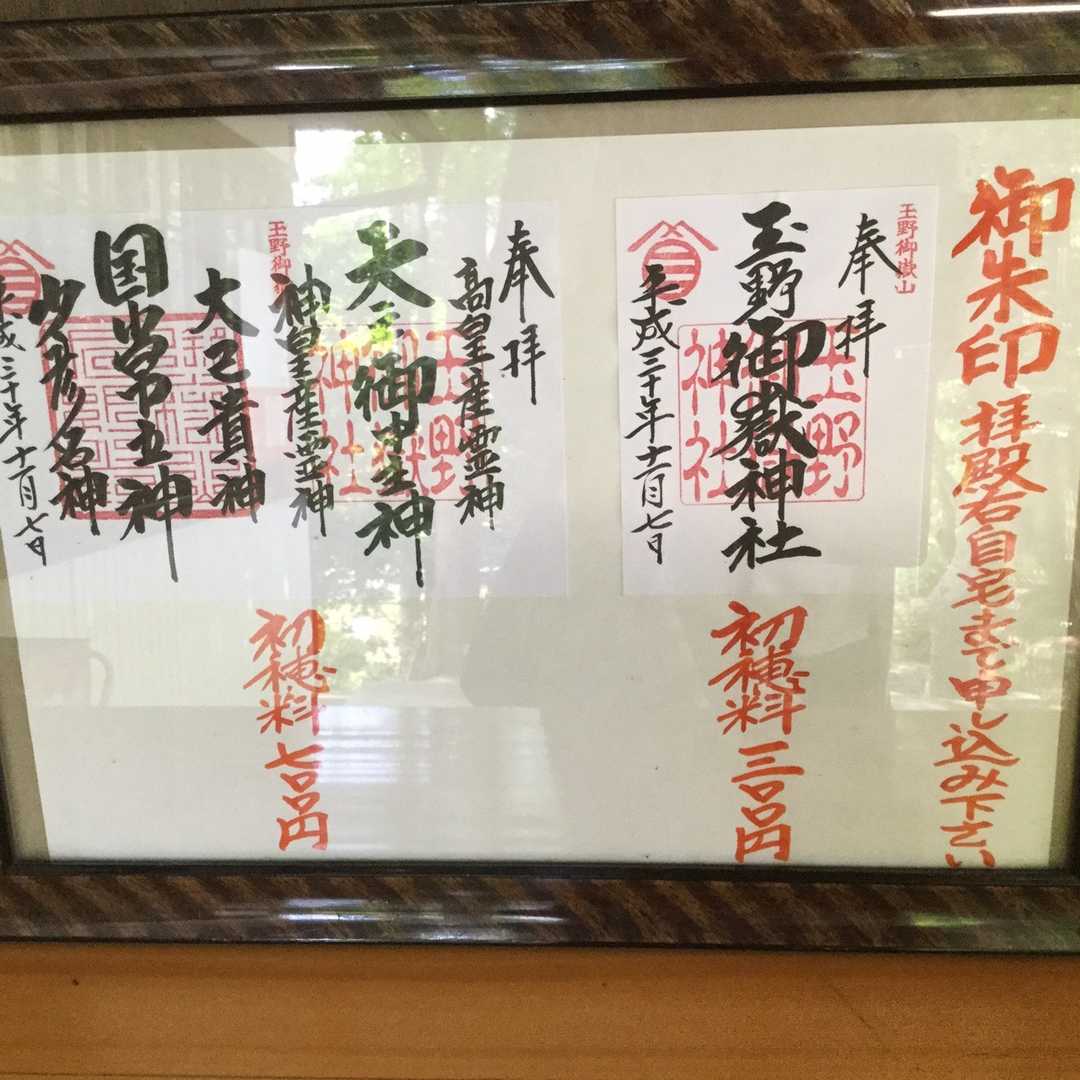 御朱印 拝殿右自宅まで申し込み下さい
玉野御嶽山
奉拝
玉野御嶽神社
玉野御嶽神社
平成三十年十一月七日
初穂料 三〇〇円
奉拝
高皇産霊神
天之御中主神
玉野御嶽神社
神皇産霊神
玉野御
大己貴神
国常立神
少彦名神
平成三十年十一月七日
初穂料 七〇〇円